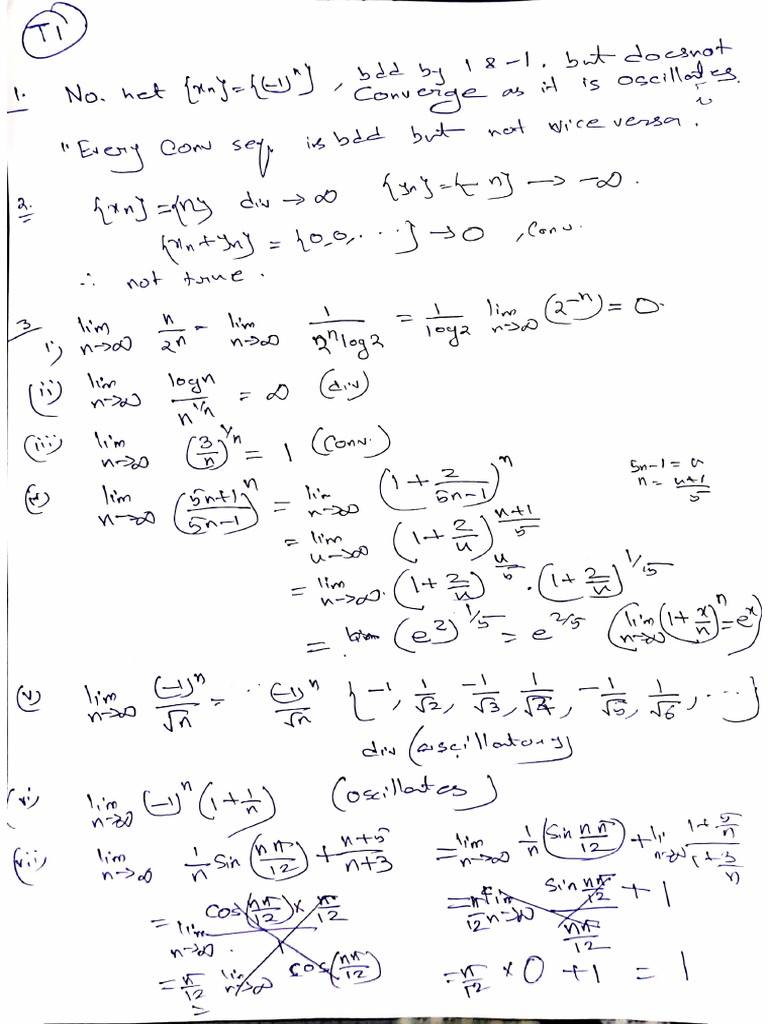 T1
1. No. let {xn}={(-1)^n}, bdd by 1 & -1. but doesnot
Converge as it is oscillates.
"Every Conv seq. is bdd but not vice versa."
2. {xn}={n} div → ∞ {yn}={-n} → -∞.
{xn+yn} = {0,0,...} → 0, Conv.
∴ not true.
3
i) lim n→∞ n/2^n = lim n→∞ 1/(2^n log2) = 1/log2 lim n→∞ (2^-n) = 0.
(ii) lim n→∞ logn/n^(1/n) = ∞ (div)
(iii) lim n→∞ (3/n)^(1/n) = 1 (Conv.)
(iv) lim n→∞ ((5n+1)/(5n-1))^n = lim n→∞ (1+2/(5n-1))^n
5n-1 = u
n = (u+1)/5
= lim u→∞ (1+2/u)^((u+1)/5)
= lim n→∞. (1+2/u)^(u/5) . (1+2/u)^(1/5)
= (e^2)^(1/5) = e^(2/5) (lim n→∞ (1+x/n)^n = e^x)
(v) lim n→∞ (-1)^n/√n = (-1)^n/√n {-1, 1/√2, -1/√3, 1/√4, -1/√5, 1/√6, ...}
div (oscillatory)
(vi) lim n→∞ (-1)^n (1+1/n) (oscillates)
(vii) lim n→∞ 1/n sin(nπ/12) + (n+5)/(n+3) = lim n→∞ 1/n (sin nπ/12) + lim n→∞ (1+5/n)/(1+3/n)
= lim n→∞ cos(nπ/12) × π/12
= π/12 lim n→∞ cos(nπ/12)
= π/12 lim n→∞ (sin nπ/12)/(nπ/12) + 1
= π/12 × 0 + 1 = 1